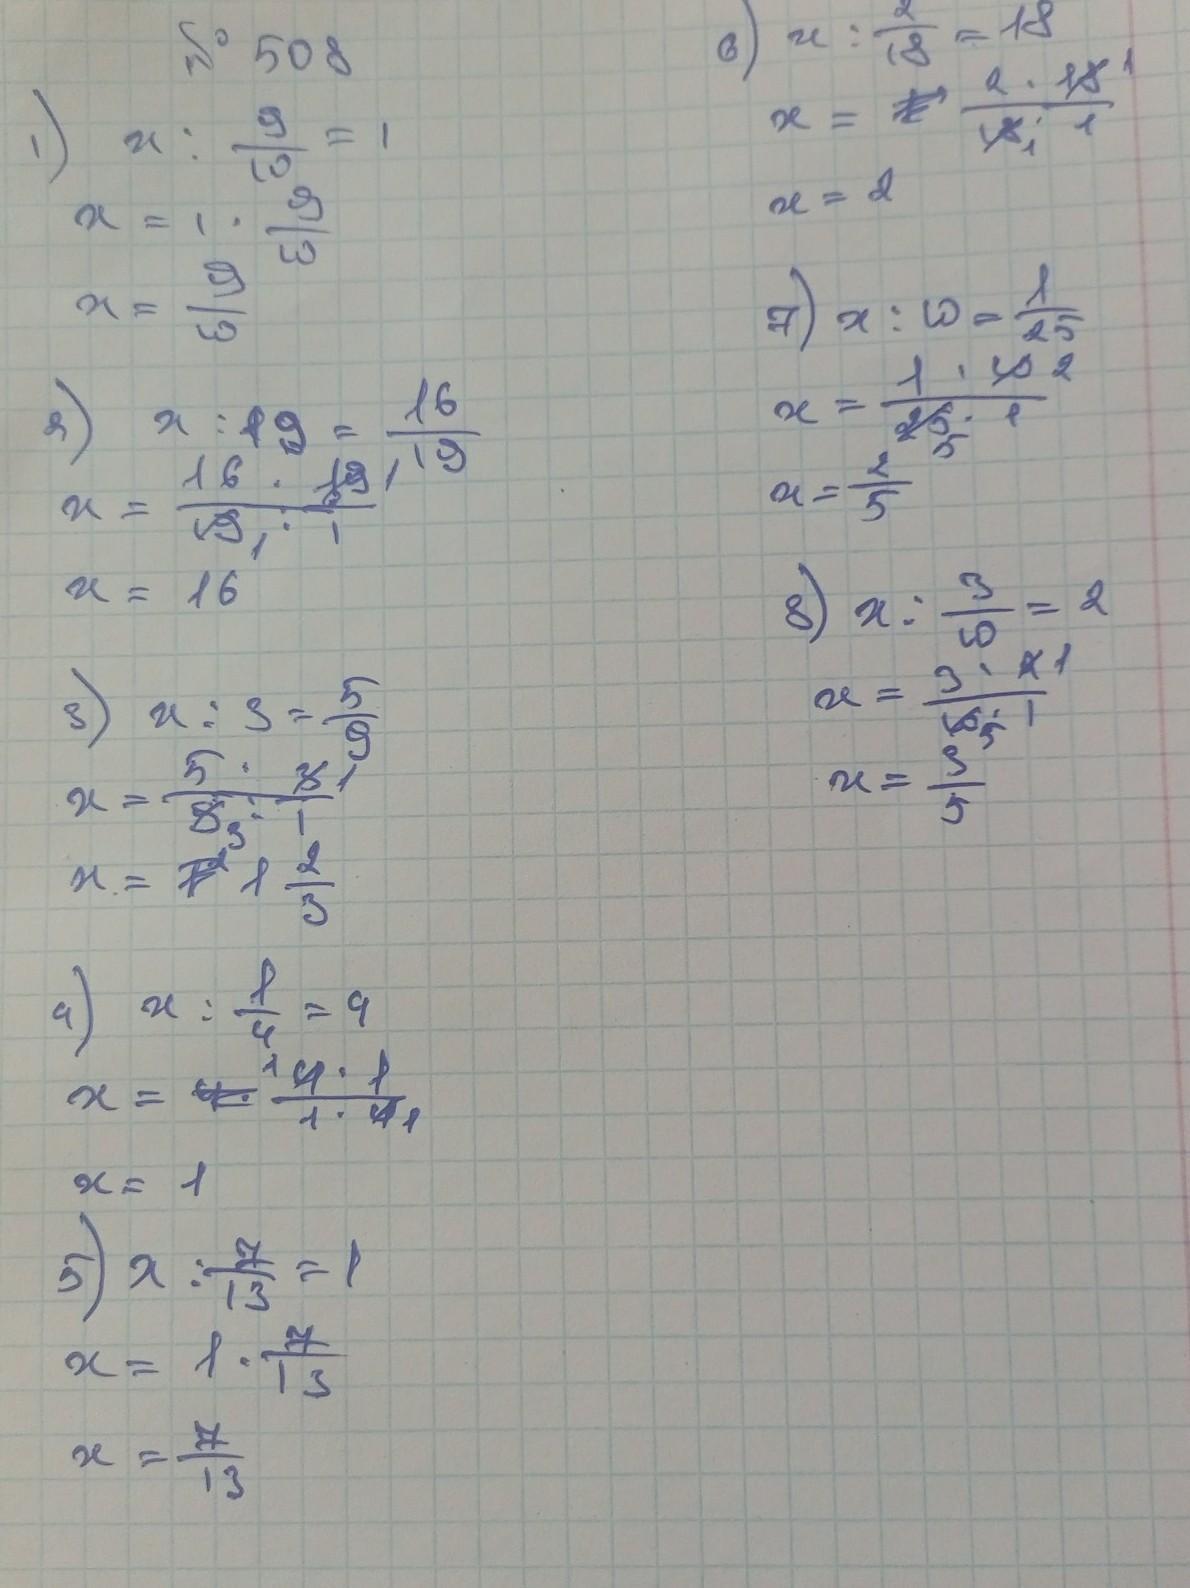 № 508
1) x : 9/10 = 1
x = 1 · 9/10
x = 9/10
2) x : 19 = 16/19
x = 16 · 19 1 / 19 1 · 1
x = 16
3) x : 3 = 5/9
x = 5 · 3 1 / 9 3 · 1
x = 1 2/3
4) x : 1/4 = 4
x = 1 4 · 1 / 1 · 4 1
x = 1
5) x : 7/13 = 1
x = 1 · 7/13
x = 7/13
6) x : 2/18 = 18
x = 2 · 18 1 / 18 1 · 1
x = 2
7) x : 10 = 1/25
x = 1 · 10 2 / 25 5 · 1
x = 2/5
8) x : 3/10 = 2
x = 3 · 2 1 / 10 5 · 1
x = 3/5